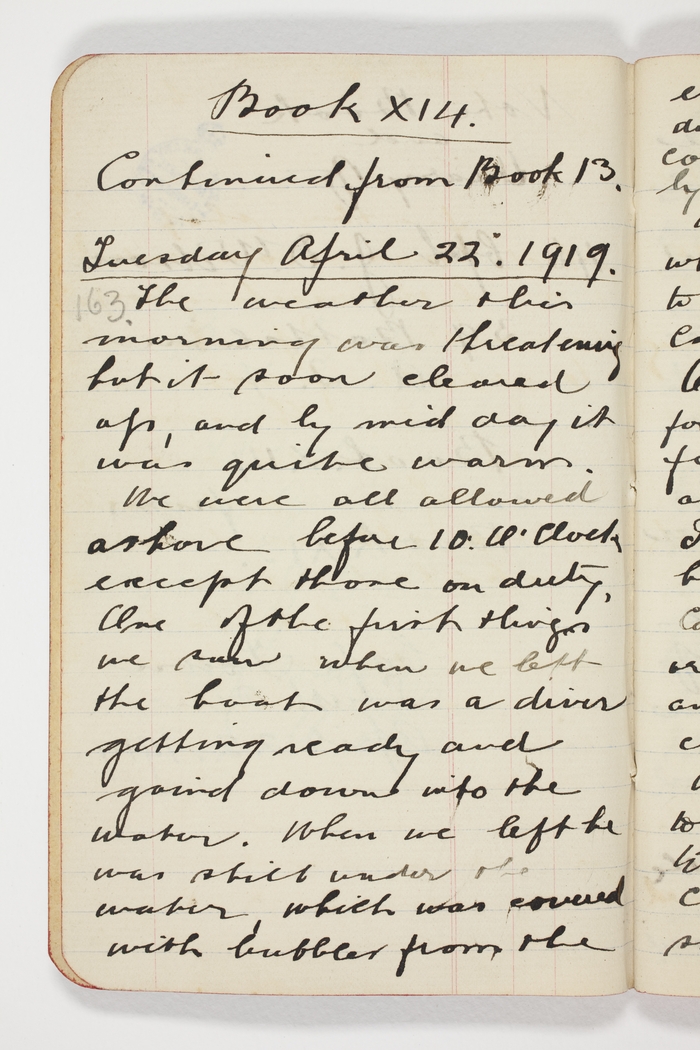 Book X14.
Continued from Book 13.
Tuesday April 22". 1919.
163. The weather this
morning was threatening
but it soon cleared
up, and by mid day it
was quite warm.
We were all allowed
ashore before 10. O'Clock
except those on duty,
One of the first things
we saw when we left
the boat was a diver
getting ready and
goind down into the
water. When we left he
was still under the
water, which was covered
with bubbles from the